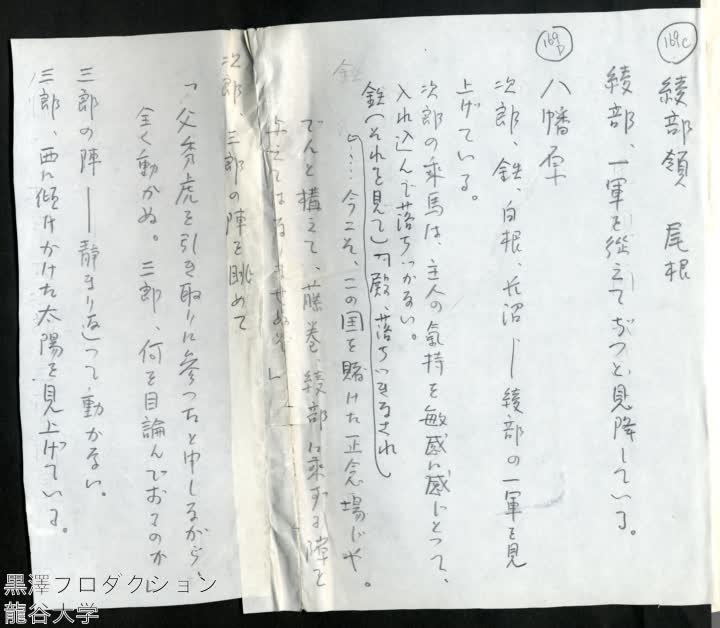 169C
綾部領 尾根
綾部、一軍を従えて、ぢつと、見降している。
169D
八幡原
次郎、鉄、白根、長沼――綾部の一軍を見
上げている。
次郎の乗馬は、主人の気持を敏感に感じとって、
入れ込んで落ちつかない。
鉄(それを見て)「殿、落ちつきなされ
……今こそ、この国を賭けた正念場じや。
でんと構えて、藤巻、綾部に乗ずる隙を
与えてはなりませぬぞ」
次郎、三郎の陣を眺めて
「父秀虎を引き取りに参つたと申しながら、
全く動かぬ。三郎、何を目論んでおるのか」
三郎の陣――静まり返って動かない。
三郎、西に傾けかけた太陽を見上げている。
黒澤プロダクション
龍谷大学